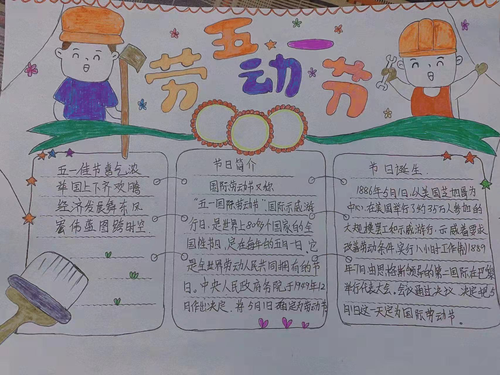 五一
劳动节
五一佳节喜气浓
举国上下齐欢腾
经济发展舞东风
宏伟蓝图跨时空
节日简介
国际劳动节又称
"五一国际劳动节"国际示威游
行日,是世界上80多个国家的全
国性节日,定在每年的五月一日,它
是全世界劳动人民共同拥有的节
日。中央人民政府务院于1949年12
月作出决定,将5月1日确定为劳动节
节日诞生
1886年5月1日,以美国芝加哥为
中心,在美国举行了约35万人参加的
大规模罢工和示威游行,示威者要求
改善劳动条件,实行八小时工作制1889
年7月由恩格斯领导的第二国际在巴黎
举行代表大会,会议通过决议,决定把5
月1日这一天定为国际劳动节。